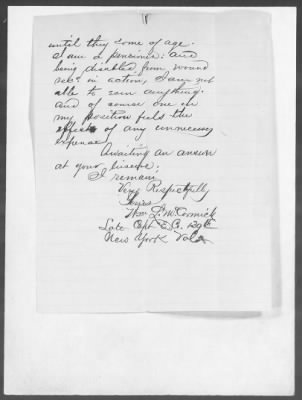 until they come of age.
I am a pensioner: and
being disabled from wound
rec. in action, I am not
able to earn anything.
and of course one in
my position feels the
effects of any unnecessary
expense
Awaiting an answer
at your
I remain
Very Respectfully
Yours
Wm L. McCormick
Late Capt
New York Vols